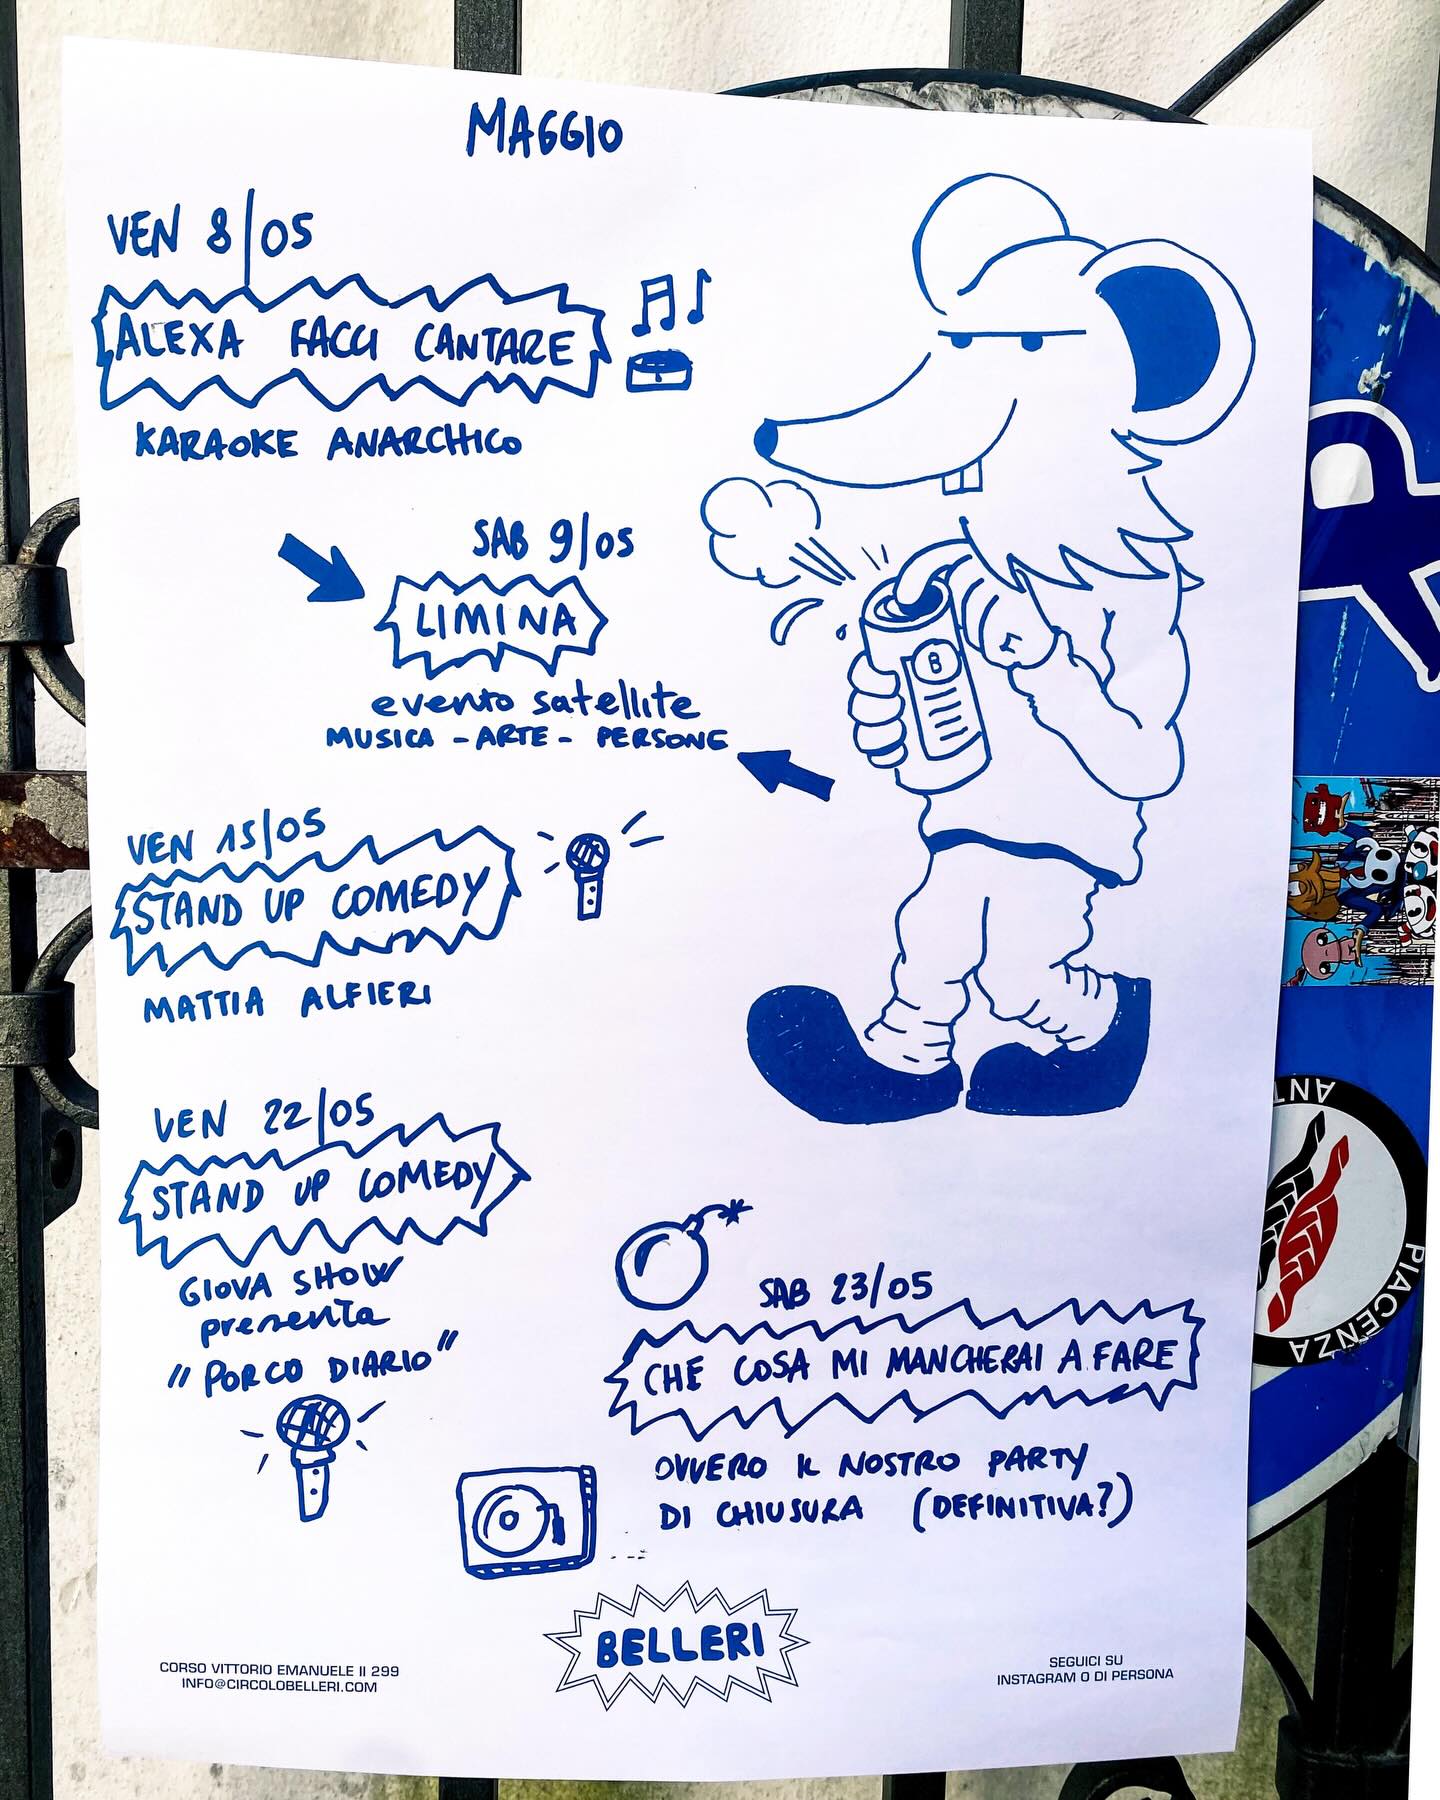 MAGGIO
VEN 8/05
ALEXA FACCI CANTARE
KARAOKE ANARCHICO
SAB 9/05
LIMINA
evento satellite
MUSICA - ARTE - PERSONE
B
VEN 15/05
STAND UP COMEDY
MATTIA ALFIERI
VEN 22/05
STAND UP COMEDY
GIOVA SHOW
presenta
"PORCO DIARIO"
SAB 23/05
CHE COSA MI MANCHERAI A FARE
OVVERO IL NOSTRO PARTY
DI CHIUSURA (DEFINITIVA?)
BELLERI
CORSO VITTORIO EMANUELE II 299
INFO@CIRCOLOBELLERI.COM
SEGUICI SU
INSTAGRAM O DI PERSONA
PIACENZA